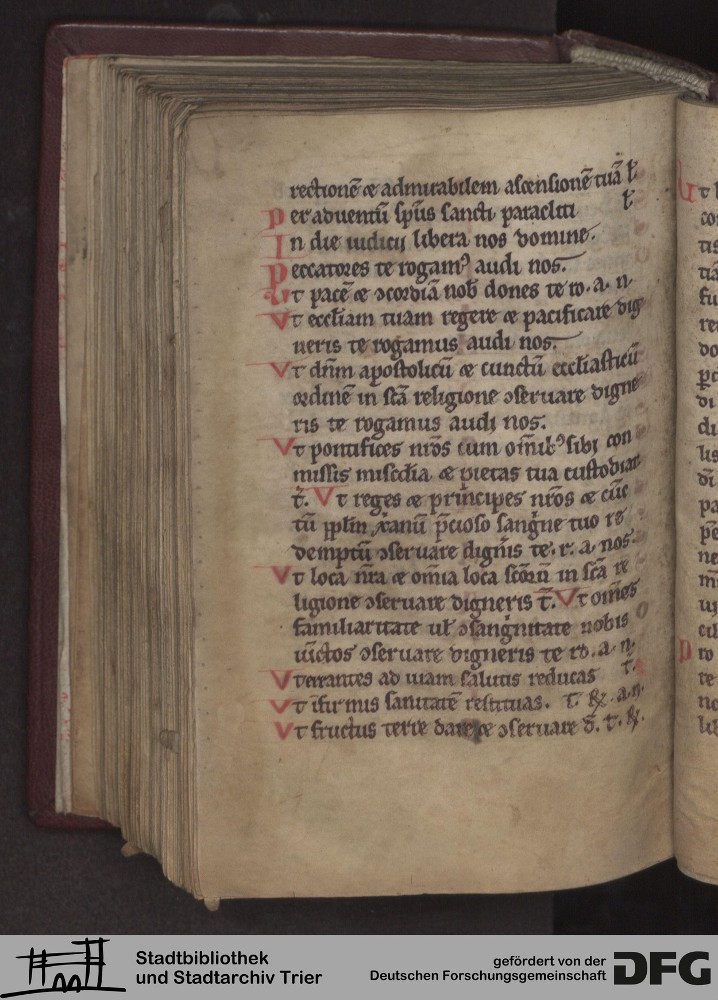 rectionē ⁊ admirabilem ascensionē tuā ł
Per aduentū sp̄us sancti paracliti ł
In die iudicij libera nos domine.
Peccatores te rogam᷒ audi nos.
Ut pacē ⁊ ɔcordiā nob̄ dones te ro. a. n.
Vt eccl̄iam tuam regere ⁊ pacificare dig
neris te rogamus audi nos.
Vt dn̄m apostolicū ⁊ cunctū eccl̄iasticū
ordinē in sc̄a religione ɔseruare digne
ris te rogamus audi nos.
Vt pontifices nr̄os cum om̄ib᷒ sibi con
missis misc̄dia ⁊ pietas tua custodiat
t̄. Vt reges ⁊ principes nr̄os ⁊ cūc
tū pplm̄ xr̄anū p̄cioso sangne tuo re
demptū ɔseruare dignis te. r. a. nos.
Vt loca nr̄a ⁊ om̄ia loca sc̄orū in sc̄a re
ligione ɔseruare digneris t̄. Vt om̄es
familiaritate ul̄ ɔsangnitate nobis
iūctos ɔseruare digneris te ro. a. n.
Vt errantes ad uiam salutis reducas t.
Vt īfirmis sanitatē restituas. t. ℞. a. n.
Vt fructus terre dare ⁊ ɔseruare d̄. t. ℞.
Stadtbibliothek
und Stadtarchiv Trier
gefördert von der
Deutschen Forschungsgemeinschaft
DFG